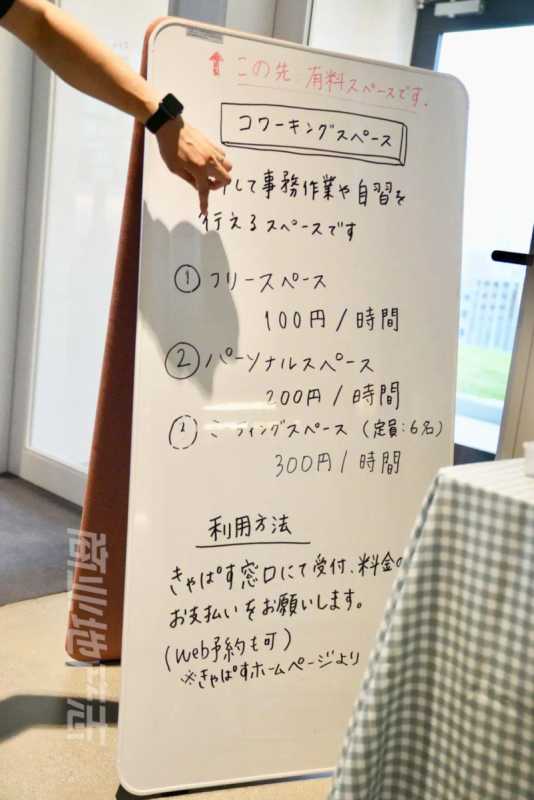 ↑ この先 有料スペースです.
コワーキングスペース
して事務作業や自習を
行えるスペースです
① フリースペース
100円/時間
② パーソナルスペース
200円/時間
③ ミーティングスペース (定員:6名)
300円/時間
利用方法
きゃぱす窓口にて受付、料金の
お支払いをお願いします。
(web予約も可)
※きゃぱすホームページより